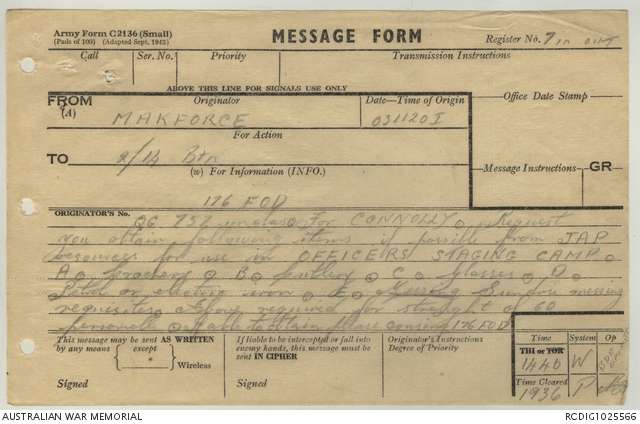 Army Form C2136 (Small)
(Pads of 100) (Adapted Sept. 1943)
MESSAGE FORM
Register No. 7 in out
Call
Ser. No.
Priority
Transmission Instructions
ABOVE THIS LINE FOR SIGNALS USE ONLY
FROM
(A)
Originator
MAKFORCE
Date—Time of Origin
031120 I
Office Date Stamp
For Action
TO
2/14 Btn
(w) For Information (INFO.)
Message Instructions
GR
126 FOD
ORIGINATOR'S No.
QG 752 unclas. For CONNOLLY. Request
you obtain following items if possible from JAP
resources for use in OFFICERS STAGING CAMP.
A. crockery. B. cutlery. C. glasses. D.
Petrol or electric iron. E. Sundry messing
requisites. Above required for strength of 60
personnel. If able to obtain please consign 126 FOD
This message may be sent AS WRITTEN
by any means
except
Wireless
Signed
If liable to be intercepted or fall into
enemy hands, this message must be
sent IN CIPHER
Signed
Originator's Instructions
Degree of Priority
Time
System
Op
THI or TOR
1440
W
Time Cleared
1936
P
AUSTRALIAN WAR MEMORIAL
RCDIG1025566